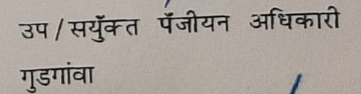 उप / सयुँक्त पँजीयन अधिकारी
गुडगांवा